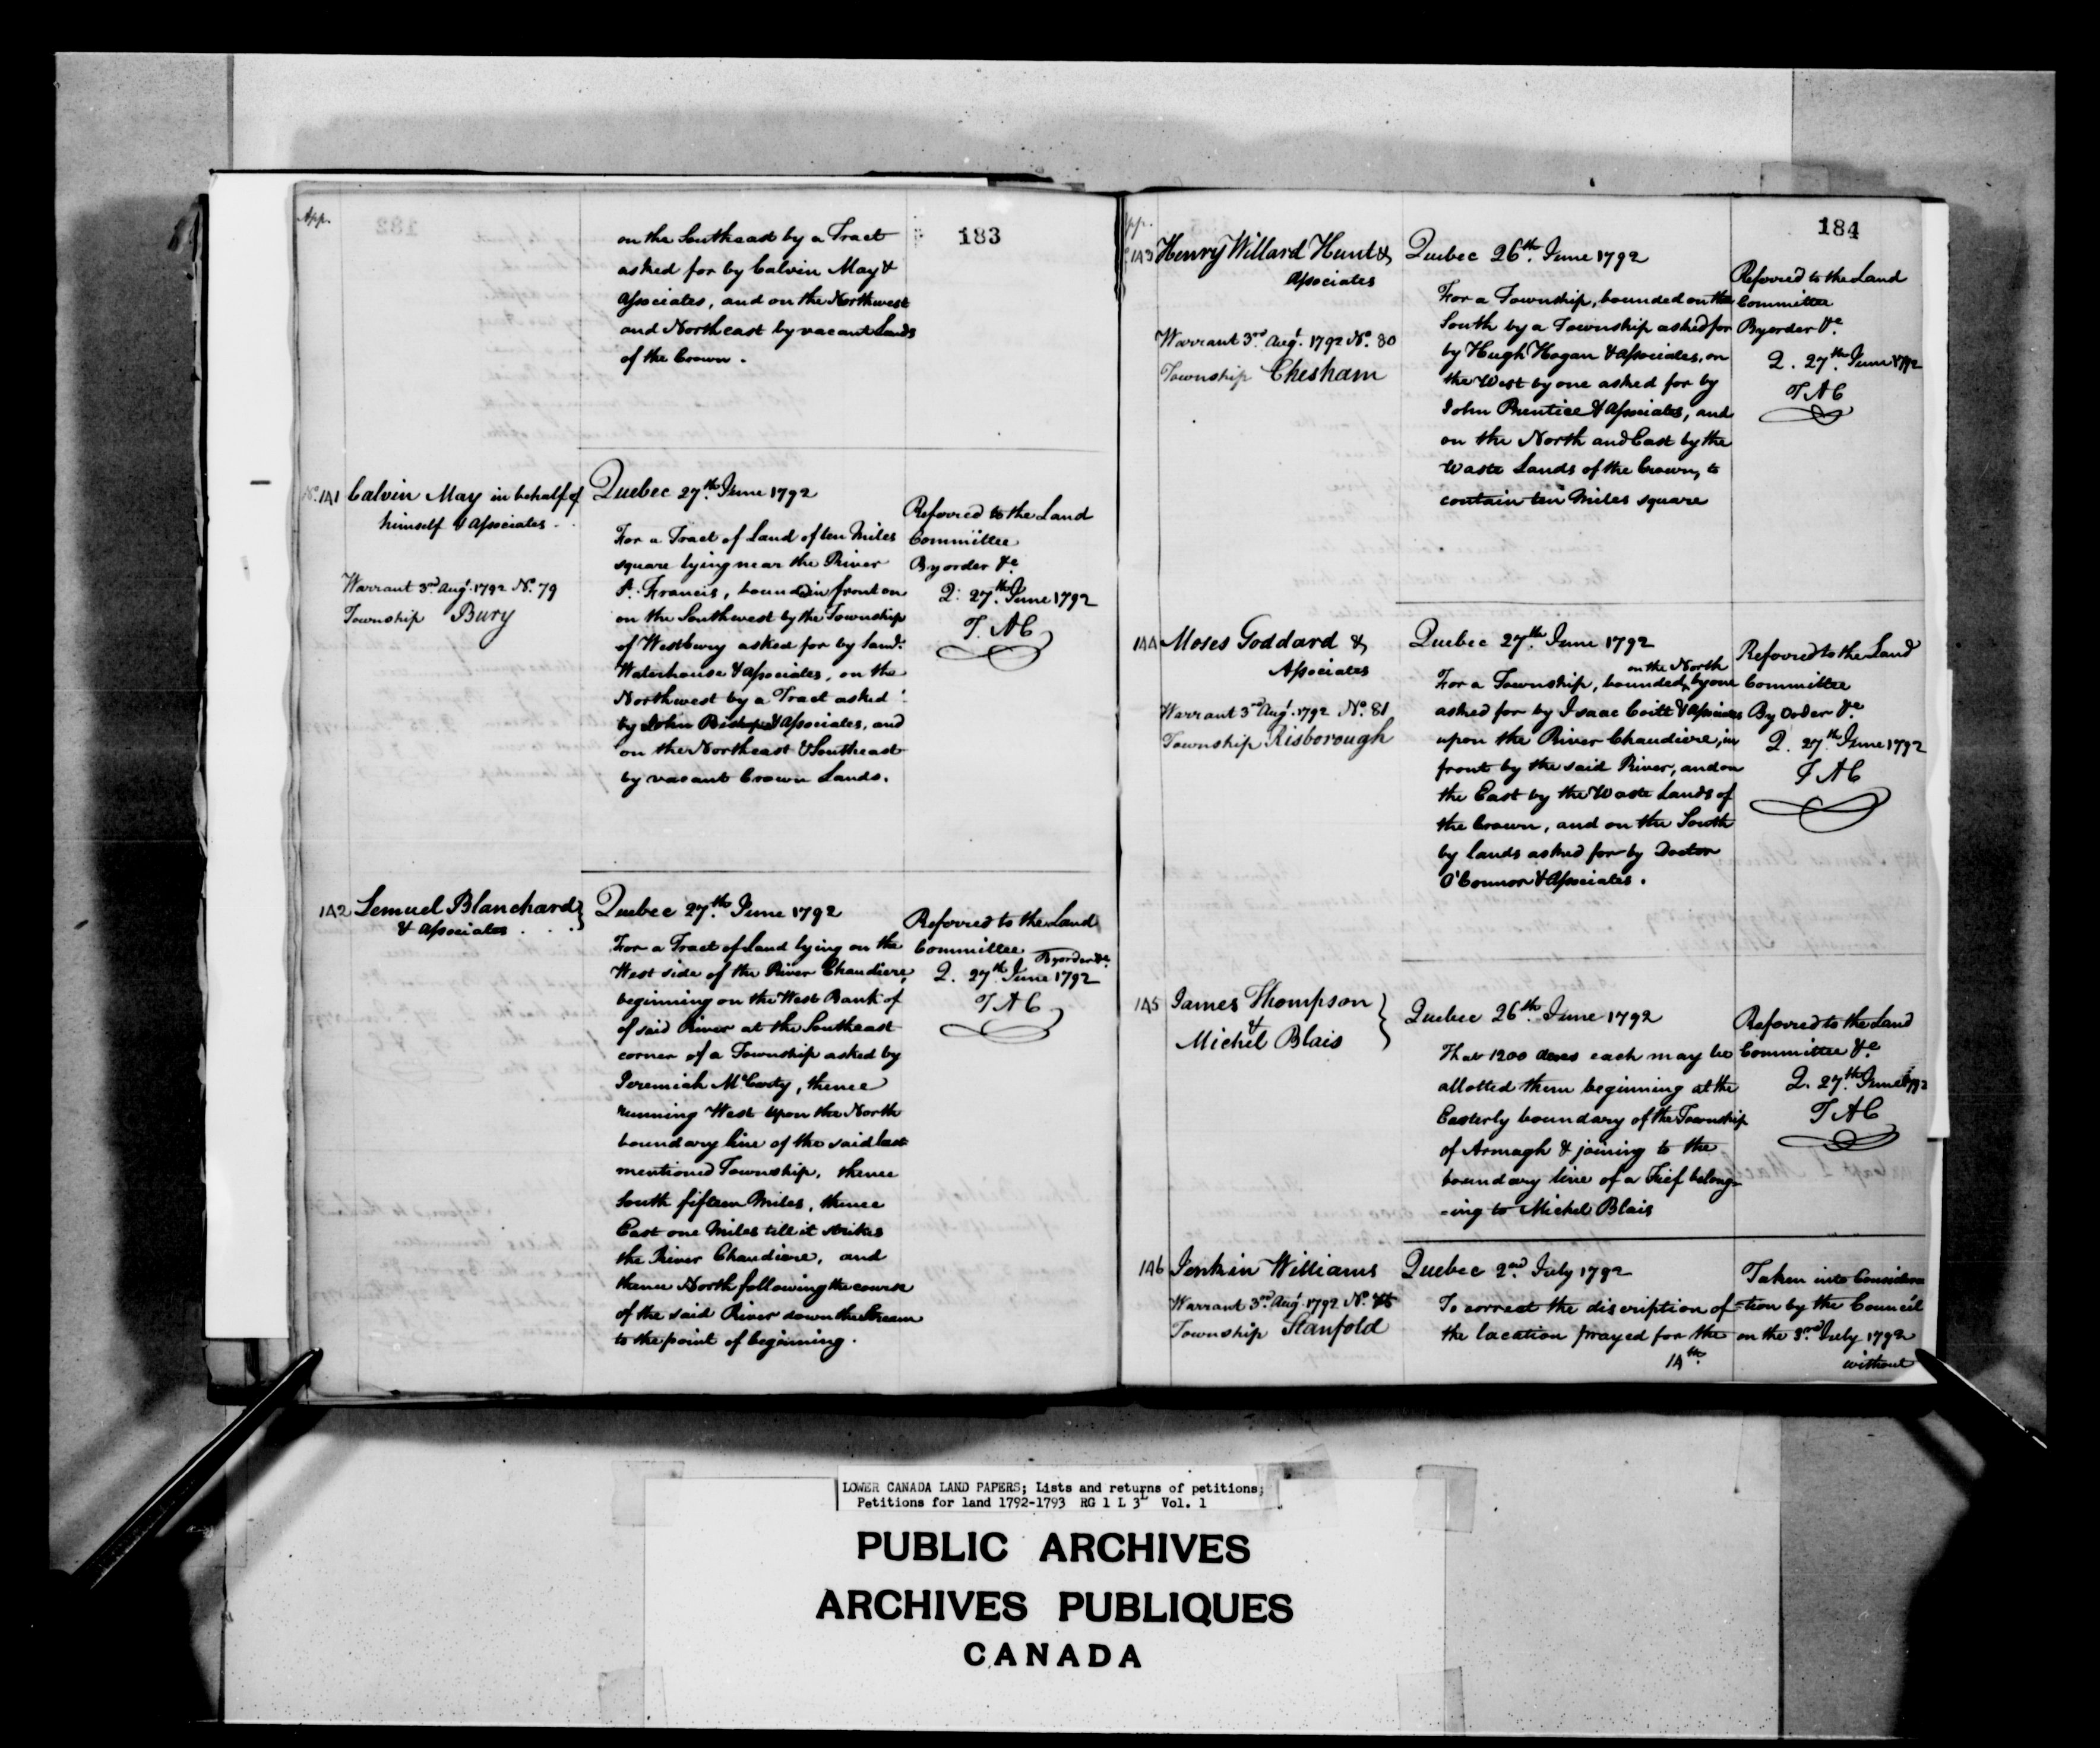 App.
183
on the Southeast by a Tract
asked for by Calvin May &
Associates, and on the Northwest
and Northeast by vacant Lands
of the Crown.
No. 141 Calvin May in behalf of
himself & Associates
Warrant 3rd Augt. 1792 No. 79
Township Bury
Quebec 27th. June 1792
For a Tract of Land of ten Miles
square lying near the River
St. Francis, bounded in front on
on the Southwest by the Township
of Westbury asked for by Saml.
Waterhouse & Associates, on the
Northwest by a Tract asked
by John Bishop & Associates, and
on the Northeast & Southeast
by vacant Crown Lands.
Referred to the Land
Committee
By order &c.
Q. 27th. June 1792
T. A C
142 Lemuel Blanchard
& Associates
Quebec 27th. June 1792
For a Tract of Land lying on the
West side of the River Chaudiere,
beginning on the West Bank of
of said River at the Southeast
corner of a Township asked by
Jeremiah McCarty, thence
running West upon the North
boundary line of the said last
mentioned Township, thence
South fifteen Miles, thence
East one Miles till it strikes
the River Chaudiere, and
thence North following the course
of the said River down the Stream
to the point of beginning.
Referred to the Land
Committee
By order &c.
Q. 27th. June 1792
T A C
184
143 Henry Willard Hunt &
Associates
Warrant 3rd Augt. 1792 No. 80
Township Chesham
Quebec 26th. June 1792
For a Township, bounded on the
South by a Township asked for
by Hugh Hogan & Associates, on
the West by one asked for by
John Prentice & Associates, and
on the North and East by the
Waste Lands of the Crown, to
contain ten Miles square
Referred to the Land
Committee
By order &c.
Q. 27th. June 1792
T A C
144 Moses Goddard &
Associates
Warrant 3rd Augt. 1792 No. 81
Township Risborough
Quebec 27th. June 1792
on the North
For a Township, bounded by one
asked for by Isaac Coitt & Associates
upon the River Chaudiere, in
front by the said River, and on
the East by the Waste Lands of
the Crown, and on the South
by lands asked for by Doctor
O'Connor & Associates.
Referred to the Land
Committee
By Order &c.
Q. 27th. June 1792
T A C
145 James Thompson
&
Michel Blais
Quebec 26th. June 1792
That 1200 acres each may be
allotted them beginning at the
Easterly boundary of the Township
of Armagh & joining to the
boundary line of a Fief belong-
-ing to Michel Blais
Referred to the Land
Committee &c.
Q. 27th. June 1792
T A C
146 Jenkin Williams
Warrant 3rd. Augt. 1792 No.
Township Stanfold
Quebec 2nd. July 1792
To correct the discription of
the location prayed for the
14th.
Taken into Considera
-tion by the Council
on the 3rd. July 1792
without
LOWER CANADA LAND PAPERS; Lists and returns of petitions;
Petitions for land 1792-1793 RG 1 L 3L Vol. 1
PUBLIC ARCHIVES
ARCHIVES PUBLIQUES
CANADA